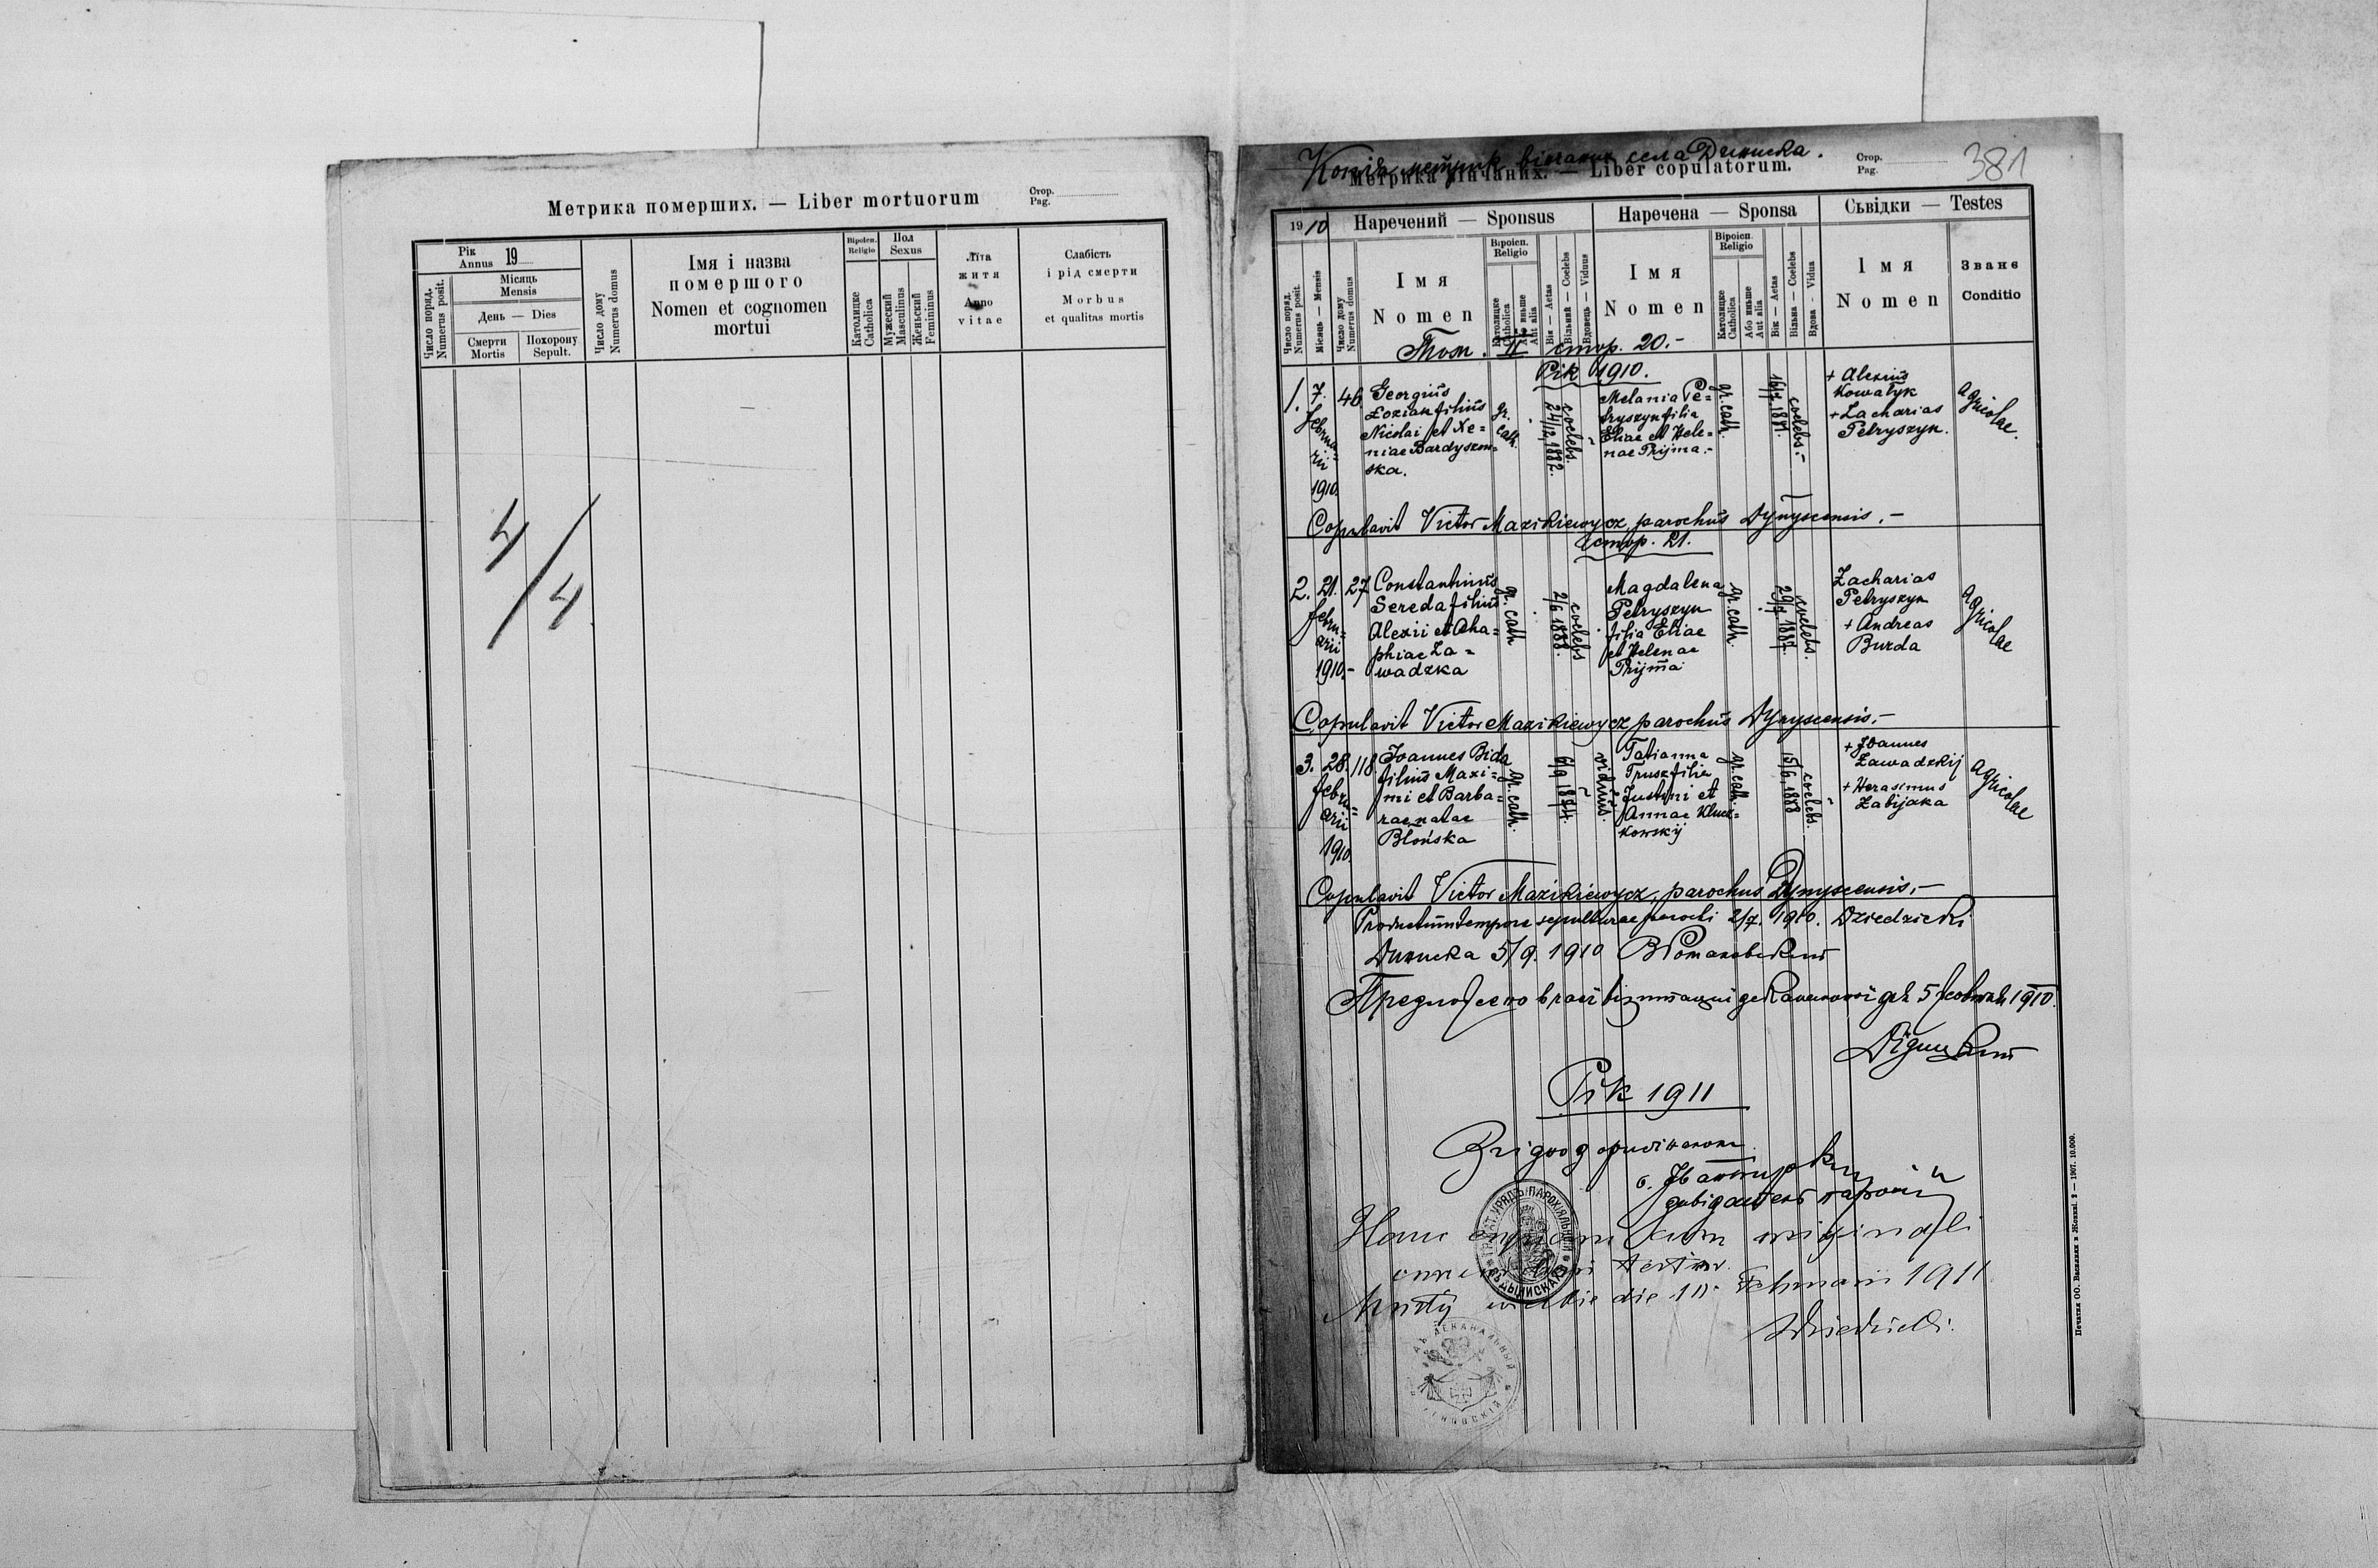 Метрика померших. — Liber mortuorum
Стор.
Pag.
Рік
Annus 19
Число поряд.
Numerus posit.
Місяць
Mensis
День — Dies
Смерти
Mortis
Похорону
Sepult.
Число дому
Numerus domus
Імя і назва
помершого
Nomen et cognomen
mortui
Віроісп.
Religio
Католицке
Catholica
Пол
Sexus
Мужеский
Masculinus
Женьский
Femininus
Літа
житя
Anno
vitae
Слабість
і рід смерти
Morbus
et qualitas mortis
4/4
Копія метрик вінчаних села Диниска.
Метрика вінчаних. — Liber copulatorum.
Стор.
Pag.
381
1910
Наречений — Sponsus
Наречена — Sponsa
Сьвідки — Testes
Число поряд.
Numerus posit.
Місяць — Mensis
Число дому
Numerus domus
Імя
Nomen
Віроісп.
Religio
Католицке
Catholica
Або иньше
Aut alia
Вік — Aetas
Вільний — Coelebs
Вдовець — Viduus
Імя
Nomen
Віроісп.
Religio
Католицке
Catholica
Або иньше
Aut alia
Вік — Aetas
Вільна — Coelebs
Вдова - Vidua
Імя
Nomen
Званє
Conditio
Том. II стор. 20.-
Рік 1910.
1.
7.
Februa=
rii
1910.
46
Georgius
Łozian filius
Nicolai et Xe=
niae Bardyszew=
ska.
gr.
cath.
24/12 1882.
coelebs.
Melania Pe=
tryszyn filia
Eliae et Hele=
nae Pryjma.-
gr. cath.
1891.
coelebs.-
+ Alexius
Kowalyk
+ Zacharias
Petryszyn.
agricolae.
Copulavit Victor Mazikiewycz, parochus Dynyscensis.-
стор. 21.
2.
21.
febru=
arii
1910.-
27
Constantinus
Sereda filius
Alexii et Aha=
phiae Za=
wadzka
gr. cath
2/6 1888.
coelebs
Magdalena
Petryszyn
filia Eliae
et Helenae
Pryjma
gr. cath.
coelebs.
Zacharias
Petryszyn
+ Andreas
Burda
agricolae
Copulavit Victor Mazikiewycz parochus Dynyscensis.-
3.
28.
febru=
arii
1910.
118.
Joannes Bida
filius Maxi=
mi et Barba=
rae natae
Błońska
gr. cath.
viduus.
Tatianna
Trusz filia
Justini et
Annae Klucz=
kowskij
gr. cath.
15/6 1888
coelebs.
+ Joannes
Zawadzkij
+ Herasimus
Zabijaka
agricolae
Copulavit Victor Mazikiewycz, parochus Dynyscensis.-
Productum tempore sepulturae parochi 2/7. 1910. Dziedzicki
Диниска 5/9. 1910
Предложено в часї візитациї деканальної дня 5 1910.
Рік 1911
Згідно з оригіналом
завідатель парохії
Hanc copiam cum originali
testor.
die Februarii 1911
Dziedzicki.
Печатня ОО. Василиян в Жовкві. 2 — 1907. 10.000.